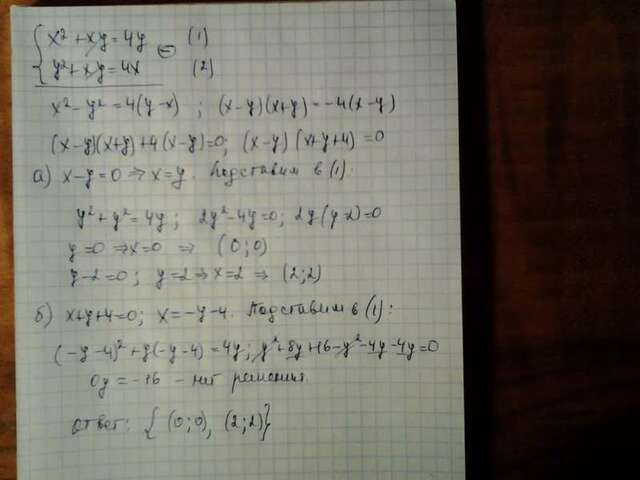 { x² + xy = 4y (1)
{ y² + xy = 4x ⊖ (2)
x² - y² = 4(y-x) ; (x-y)(x+y) = -4(x-y)
(x-y)(x+y)+4(x-y)=0; (x-y)(x+y+4)=0
а) x-y=0 ⇒ x=y. Подставим в (1):
y²+y²=4y; 2y²-4y=0; 2y(y-2)=0
y=0 ⇒ x=0 ⇒ (0;0)
y-2=0; y=2 ⇒ x=2 ⇒ (2;2)
б) x+y+4=0; x=-y-4. Подставим в (1):
(-y-4)²+y(-y-4)=4y; y²+8y+16-y²-4y-4y=0
0y = -16 - нет решения.
Ответ: {(0;0), (2;2)}